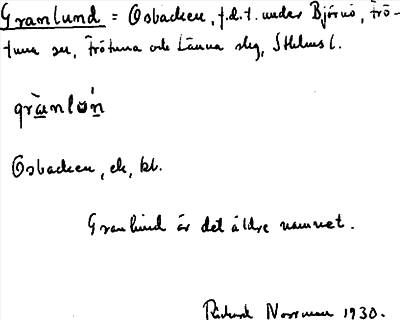 Granlund = Osbacken, f.d.t. under Björnö, Frö-
tuna sn, Frötuna och Länna skg, Sthlms l.
grànlón
Osbacken, ek, bl.
Granlund är det äldre namnet.
Rickard Norrman 1930.